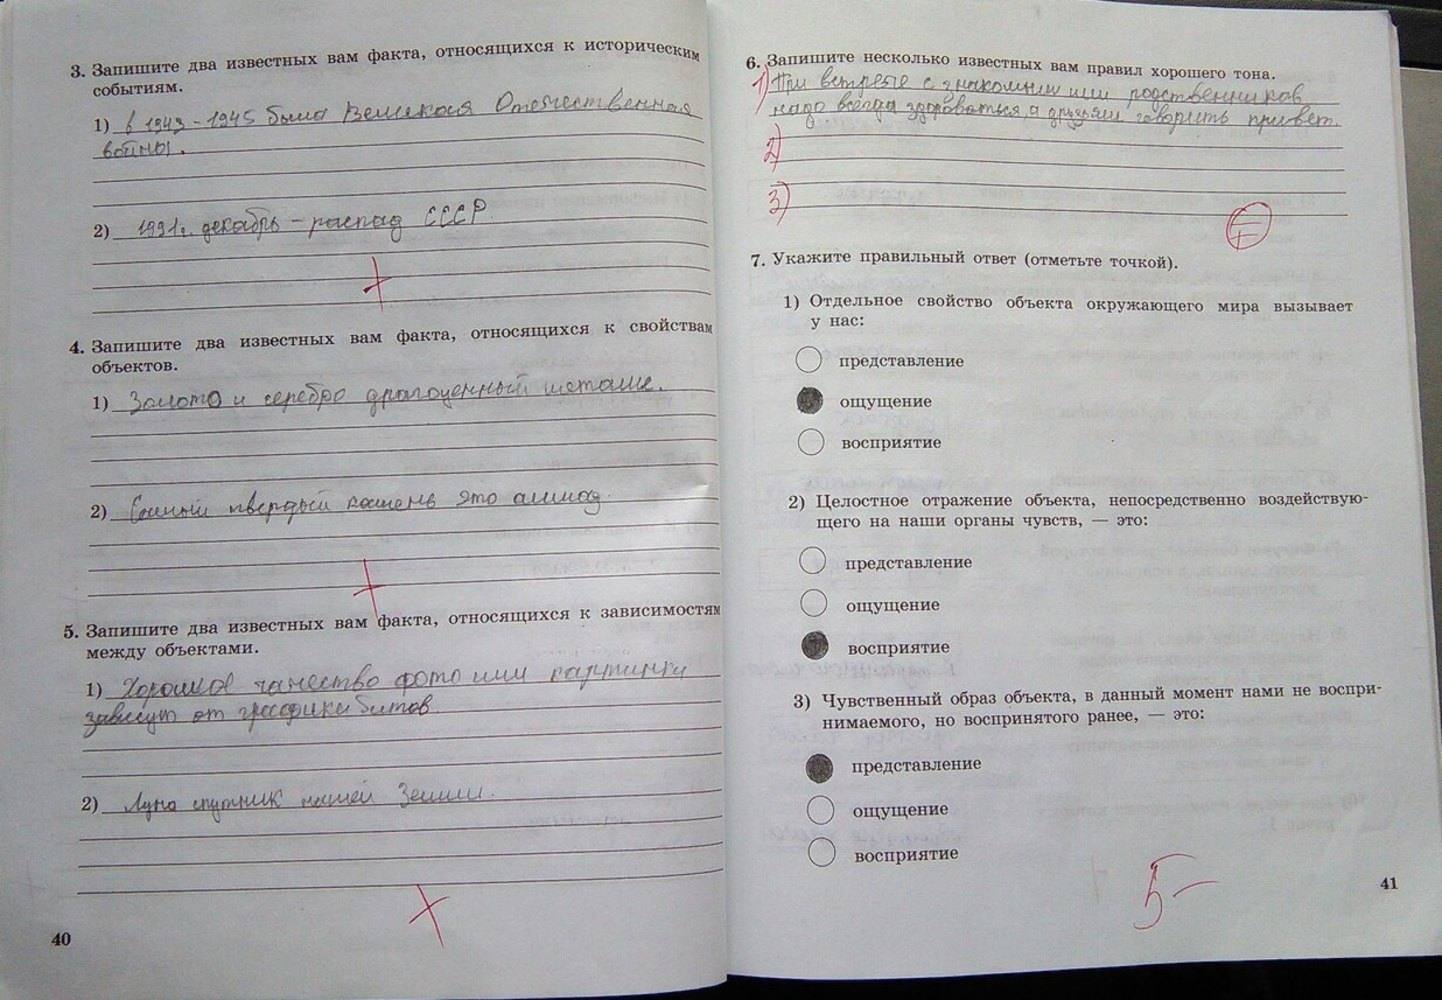 3. Запишите два известных вам факта, относящихся к историческим
событиям.
1) в 1943-1945 была Великая Отечественная
войны.
2) 1991г. декабрь - распад СССР.
+
4. Запишите два известных вам факта, относящихся к свойствам
объектов.
1) Золото и серебро драгоценный металле.
2) Самый твердый камень это алмаз.
+
5. Запишите два известных вам факта, относящихся к зависимостям
между объектами.
1) Хорошкое качество фото или картинки
зависит от графики битов.
2) Луна спутник нашей Земли.
+
40
6. Запишите несколько известных вам правил хорошего тона.
1) При встрече с знакомыми или родственников
надо всегда здороваться, а друзьям говорить привет.
2)
3)
±
7. Укажите правильный ответ (отметьте точкой).
1) Отдельное свойство объекта окружающего мира вызывает
у нас:
представление
ощущение
восприятие
2) Целостное отражение объекта, непосредственно воздействую-
щего на наши органы чувств, — это:
представление
ощущение
восприятие
3) Чувственный образ объекта, в данный момент нами не воспри-
нимаемого, но воспринятого ранее, — это:
представление
ощущение
восприятие
5-
41